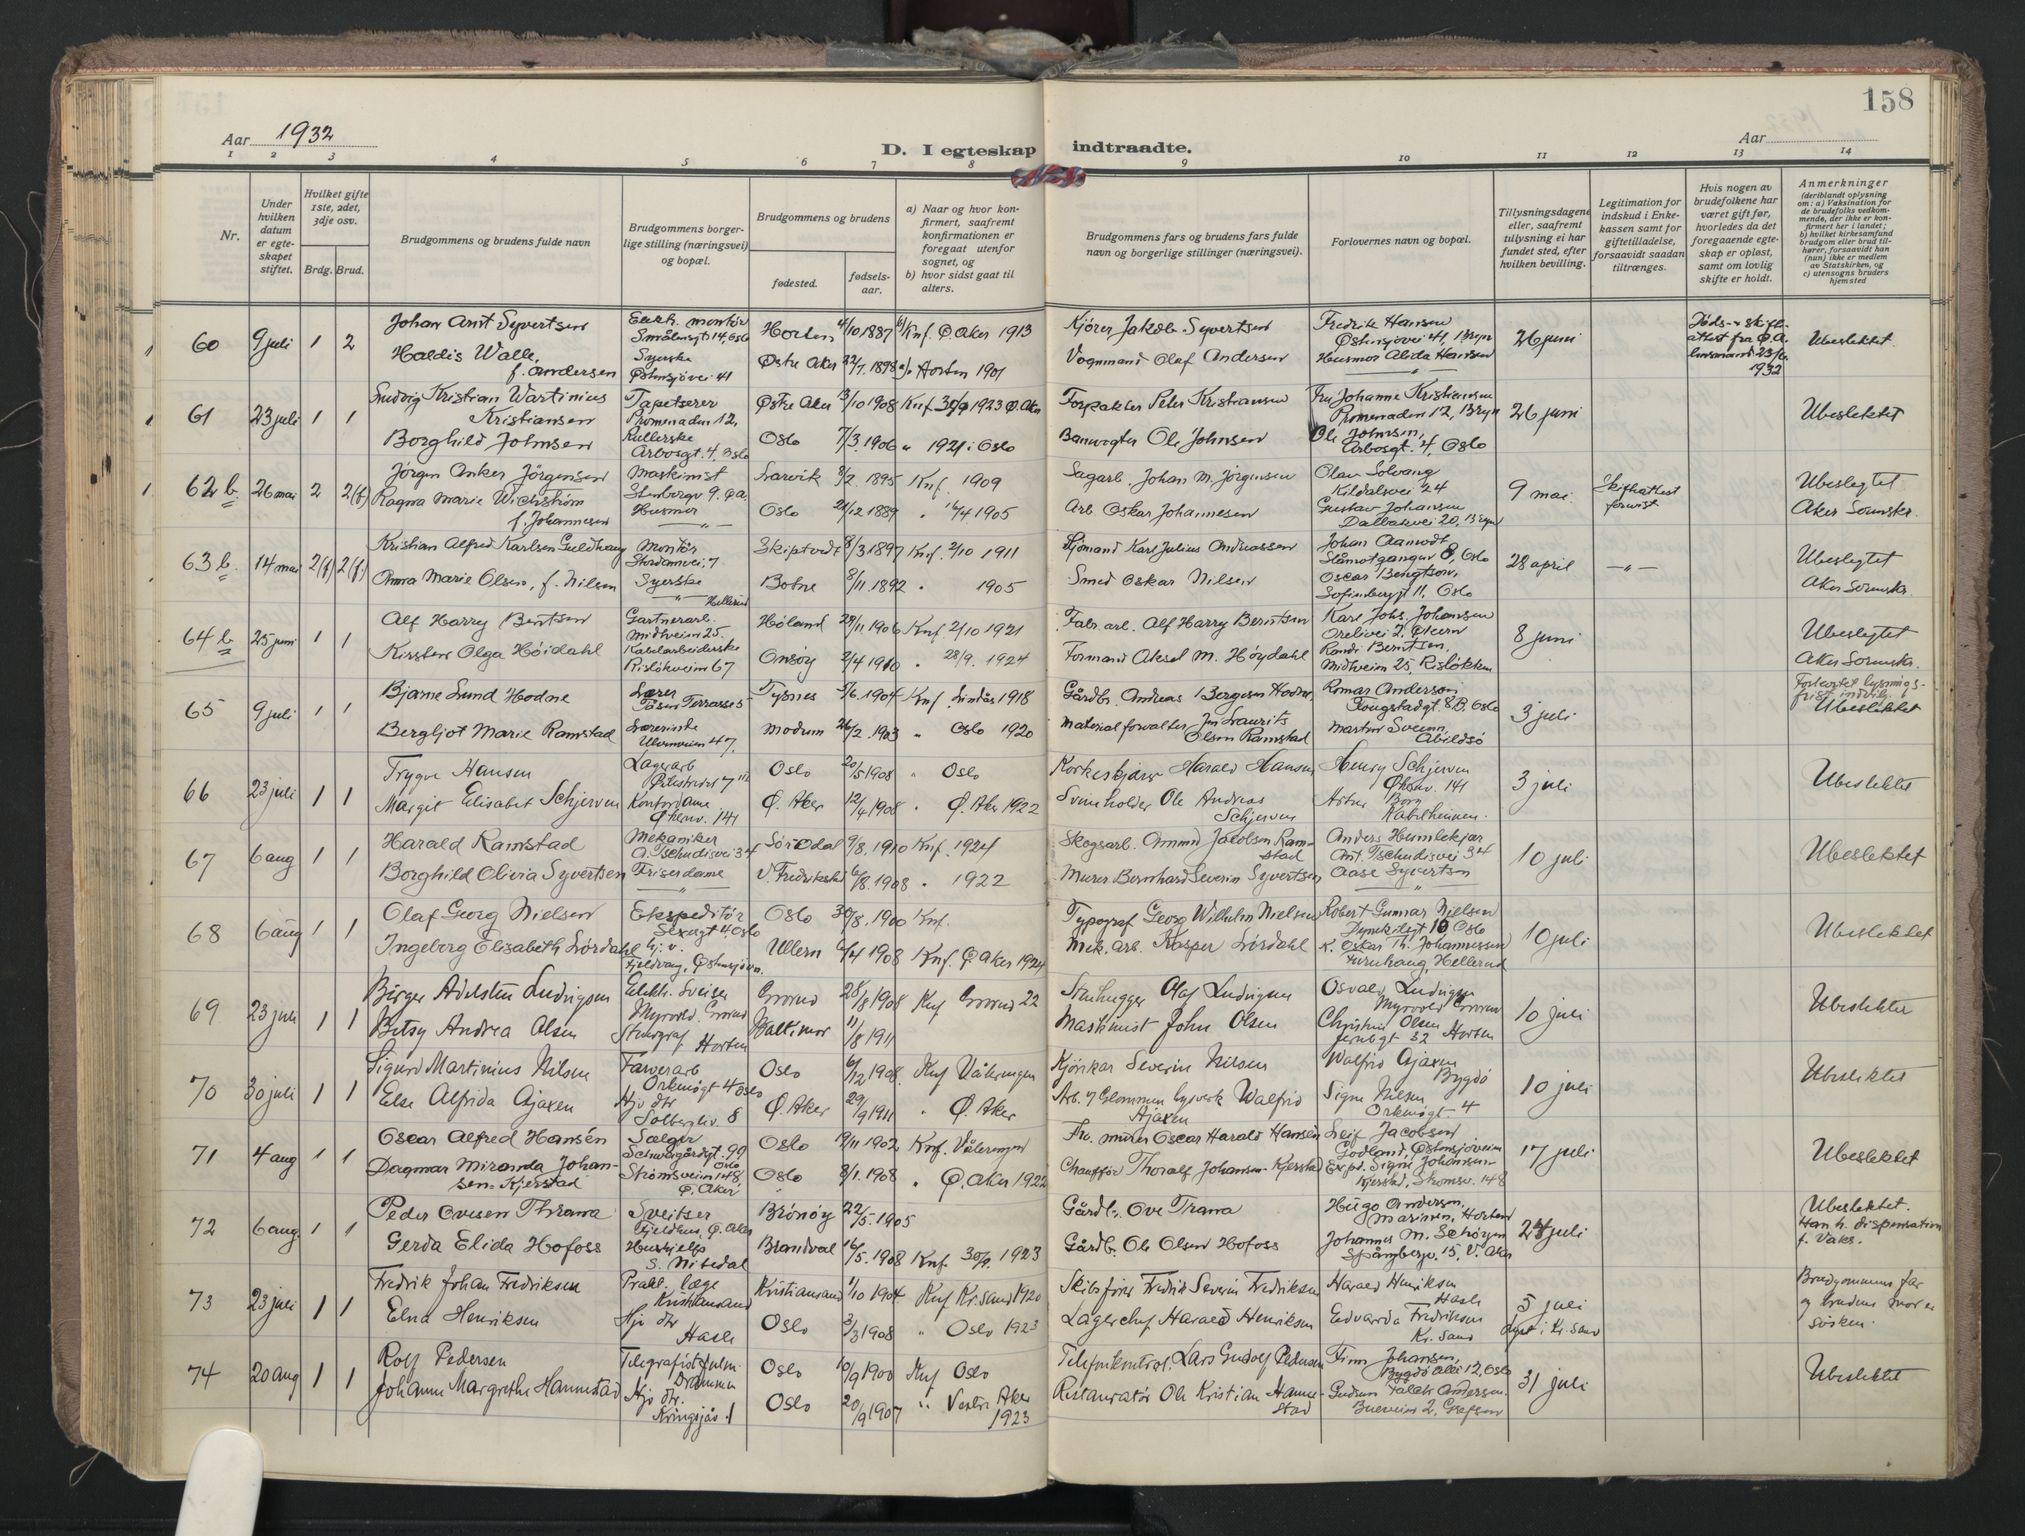 158
Aar 1932
Aar
D. I egteskap indtraadte.
1 2 3 4 5 6 7 8 9 10 11 12 13 14
Nr.
Under hvilken datum er egteskapet stiftet.
Hvilket gifte 1ste, 2det, 3dje osv.
Brdg. Brud.
Brudgommens og brudens fulde navn
Brudgommens borgerlige stilling (næringsvei) og bopæl.
Brudgommens og brudens
fødested.
fødselsaar.
a) Naar og hvor konfirmert, saafremt konfirmationen er foregaat utenfor sognet, og
b) hvor sidst gaat til alters.
Brudgommens fars og brudens fars fulde navn og borgerlige stillinger (næringsvei).
Forlovernes navn og bopæl.
Tillysningsdagene eller, saafremt tillysning ei har fundet sted, efter hvilken bevilling.
Legitimation for indskud i Enkekassen samt for giftetilladelse, forsaavidt saadan tiltrænges.
Hvis nogen av brudefolkene har været gift før, hvorledes da det foregaaende egteskap er opløst, samt om lovlig skifte er holdt.
Anmerkninger
(deriblandt oplysning om: a) Vaksination for de brudefolks vedkommende, der ikke er konfirmert her i landet; b) hvilket kirkesamfund brudgom eller brud tilhører, forsaavidt han (hun) ikke er medlem av Statskirken, og c) utensogns bruders hjemsted
60 9 juli 1 2 Johan Arnt Syvertsen Elek. montør Smålensgt 14, Oslo Horten 4/10 1887 Knf. Ø. Aker 1913 Kjører Jakob Syvertsen Fredrik Hansen Østensjøvei 41, Bryn 26 juni Ubeslektet
Haldis Walle, f. Andersen Syerske Østensjøvei 41 Østre Aker 22/7. 1898 Horten 1901 Vognmand Olaf Andersen Husmor Alida Hansen
Døds- & skifteattest fra Ø. A. 23/6 1932
61 23 juli 1 1 Ludvig Kristian Wartinius Kristiansen Tapetserer Promenaden 12, Østre Aker 13/10 1908 Knf 30/9 1923 Ø. Aker Forpakter Peter Kristiansen Fru Johanne Kristiansen Promenaden 12, Bryn 26 juni Ubeslektet
Borghild Johnsen Rullerske Arbosgt. 4, Oslo Oslo 7/3. 1906 " 1921 i Oslo Banevogter Ole Johnsen Ole Johnsen, Arbosgt. 4, Oslo
62 b. 26 mai 2 2(f) Jørgen Anker Jørgensen Maskinist Stenbergv 9. Ø A. Larvik 8/2. 1895 Knf. 1909 Sagarb. Johan M. Jørgensen Olav Solvang Kildalsvei 24 9 mai Skifteattest forevist Ubeslegtet
Ragna Marie Wichstrøm f. Johannesen Husmor Oslo 21/12 1889 " 16/4 1905 Arb. Oskar Johannesen Gustav Johansen Dalbakvei 20, Bryn Aker Sorenskr.
63 b. 14 mai 2(f) 2(f) Kristian Alfred Karlsen Guldhaug Montør Stordamvei 7 Skiptvedt 8/3 1897 Knf. 2/10 1911 Sjømand Karl Julius Andreassen Johan Aamodt Slåmotgangen 8, Oslo 28 april — " — Ubeslegtet
Anna Marie Olsen, f. Nilsen Syerske — " — Hellerud Botne 8/11 1892 " 1905 Smed Oskar Nilsen Oscar Bengtson, Sofienberggt 11, Oslo Aker Sorenskr.
64 b 25 juni 1 1 Alf Harry Berntsen Gartnerarb. Midtveien 25. Høland 29/11 1906 Knf 2/10 1921 Fabr. arb. Alf Harry Berntsen Karl Johs. Johansen Orelivei 2, Økern 8 juni Ubeslegtet
Kirsten Olga Høidahl Kabelarbeiderske Risløkveien 67 Onsøy 2/4 1910 " 28/9. 1924 Formand Aksel M. Høydahl Randi Berntsen, Midtveien 25, Risløkken Aker Sorenskr.
65 9 juli 1 1 Bjarne Lund Hodne Lærer Tåsen Terrasse 5 Tysnes 5/6. 1904 Knf. Lindås 1918 Gårdb. Andreas Bergesen Hodne Romar Anderson Kongstadgt 8B. Oslo 3 juli Forkortet lysningsfrist indvilg. Ubeslektet
Bergljot Marie Ramstad Lærerinde Ulvenveien 47, Modum 26/2. 1903 " Oslo 1920 Materialforvalter Jens Laurits Olsen Ramstad Martin Sveen, Abildsø
66 23 juli 1 1 Trygve Hansen Lagerarb Oslo 20/5 1908 " Oslo Korkeskjærer Harald Hansen Henry Schjerven Økernv. 141 3 juli Ubeslektet
Margit Elisabet Schjerven Kontordame Økernv. 141 Ø. Aker 12/4 1908 " Ø. Aker 1922 Svineholder Ole Andreas Schjerven Artur Borg Kabelheimen.
67 6 aug 1 1 Harald Ramstad Mekaniker A. Tschudisvei 34 Sørodal 9/8. 1910 Knf. 1924 Skogsarb. Amund Jacobsen Ramstad Anders Humlekjær Ant. Tschudisvei 34 10 juli Ubeslektet
Borghild Olivia Syvertsen Friserdame — " — V. Fredrikstad 6/8. 1908 " 1922 Murer Bernhard Severin Syvertsen Aase Syvertsen — " —
68 6 aug 1 1 Olaf Georg Nielsen Ekspeditør Oslo 30/8. 1900 Knf. Typograf Georg Wilhelm Nielsen Robert Gunnar Nielsen Dynekilgt 10 Oslo 10 juli Ubeslektet
Ingeborg Elisabeth Lørdahl hj. v. Fjeldvang, Østensjøvn. Ullern 6/4 1908 Knf. Ø. Aker 1924 Mek. arb. Kasper Lørdahl K. Oskar Th. Johannessen Furuhaug, Hellerud
69 23 juli 1 1 Birger Adelsten Ludvigsen Elekt. Sveiser Myrvold, Grorud Grorud 28/8 1908 Knf Grorud 22 Stenhugger Olaf Ludvigsen Osvald Ludvigsen Myrvold Grorud 10 juli Ubeslektet
Betsy Andrea Olsen Stenograf Horten Baltimor 11/8 1911 Maskinist John Olsen Christine Olsen 32 Horten
70 30 juli 1 1 Sigurd Martinius Nilsen Farverarb Orknøgt 4 Oslo Oslo 6/12 1908. Knf Vålerengen Kjørekar Severin Nilsen Walfrid Ajaxen Bygdø 10 juli Ubeslektet
Else Alfrida Ajaxen Hjv dtr Solbergliv. 8 Ø. Aker 29/9 1911 " Ø. Aker Arb. v Glommen lysverk Walfrid Ajaxen Signe Nilsen Orknøgt 4
71 4 aug 1 1 Oscar Alfred Hansén Sælger Schweigårdgt. 99 Oslo Oslo 19/11 1902 Knf. Vålerengen Fhv. murer Oscar Harald Hansén Leif Jacobsen Godland, Østensjøveien 17 juli Ubeslektet
Dagmar Miranda Johansen-Kjerstad Strømsveien 148, Ø. Aker Oslo 8/1. 1908 " Ø. Aker 1922 Chauffør Thoralf Johansen-Kjerstad Exp. Signe Johansen-Kjerstad, Strømsv. 148
72 6 aug 1 1 Peder Ovesen Thrana Sveitser Fjeldhus, Ø. Aker Brönöy 22/5. 1905 Gårdb. Ove Trana Hugo Andersen, Marinen, Horten 24 juli Ubeslektet. Han h. dispensation f. Vaks.
Gerda Elida Hofoss Hushjelp S. Nitedal Brandval 16/5. 1908 Knf. 30/9. 1923 Gårdb. Ole Olsen Hofoss Johannes M. Schörgen Spångbergv. 15, V. Aker
73 23 juli 1 1 Fredrik Johan Fredriksen Prakt. læge Kristiansand Kristiansand 1/10 1904 Knf Kr. Sand 1920 Skibsfører Fredrik Severin Fredriksen Harald Henriksen Hasle 5 juli lyst i Kr. Sand Brudgommens far og brudens mor er søsken.
Elna Henriksen Hjv dtr Hasle Oslo 3/3 1908 " Oslo 1923 Lagerchef Harald Henriksen Edvarda Fredriksen Kr. Sand
74 20 aug 1 1 Rolf Pedersen Telegrafist Drammen Oslo 10/9 1900 Knf Oslo Telefonkontrol. Lars Gudolf Pedersen Finn Johansen, Bygdø Allé 12, Oslo 31 juli Ubeslektet
Johanne Margrethe Hannestad Hjv dtr. Kringsjås 1 Oslo 20/9 1907 " Vestre Aker 1923 Restauratør Ole Kristian Hannestad Gudrun Falch Andersen. Bueveien 2, Grefsen